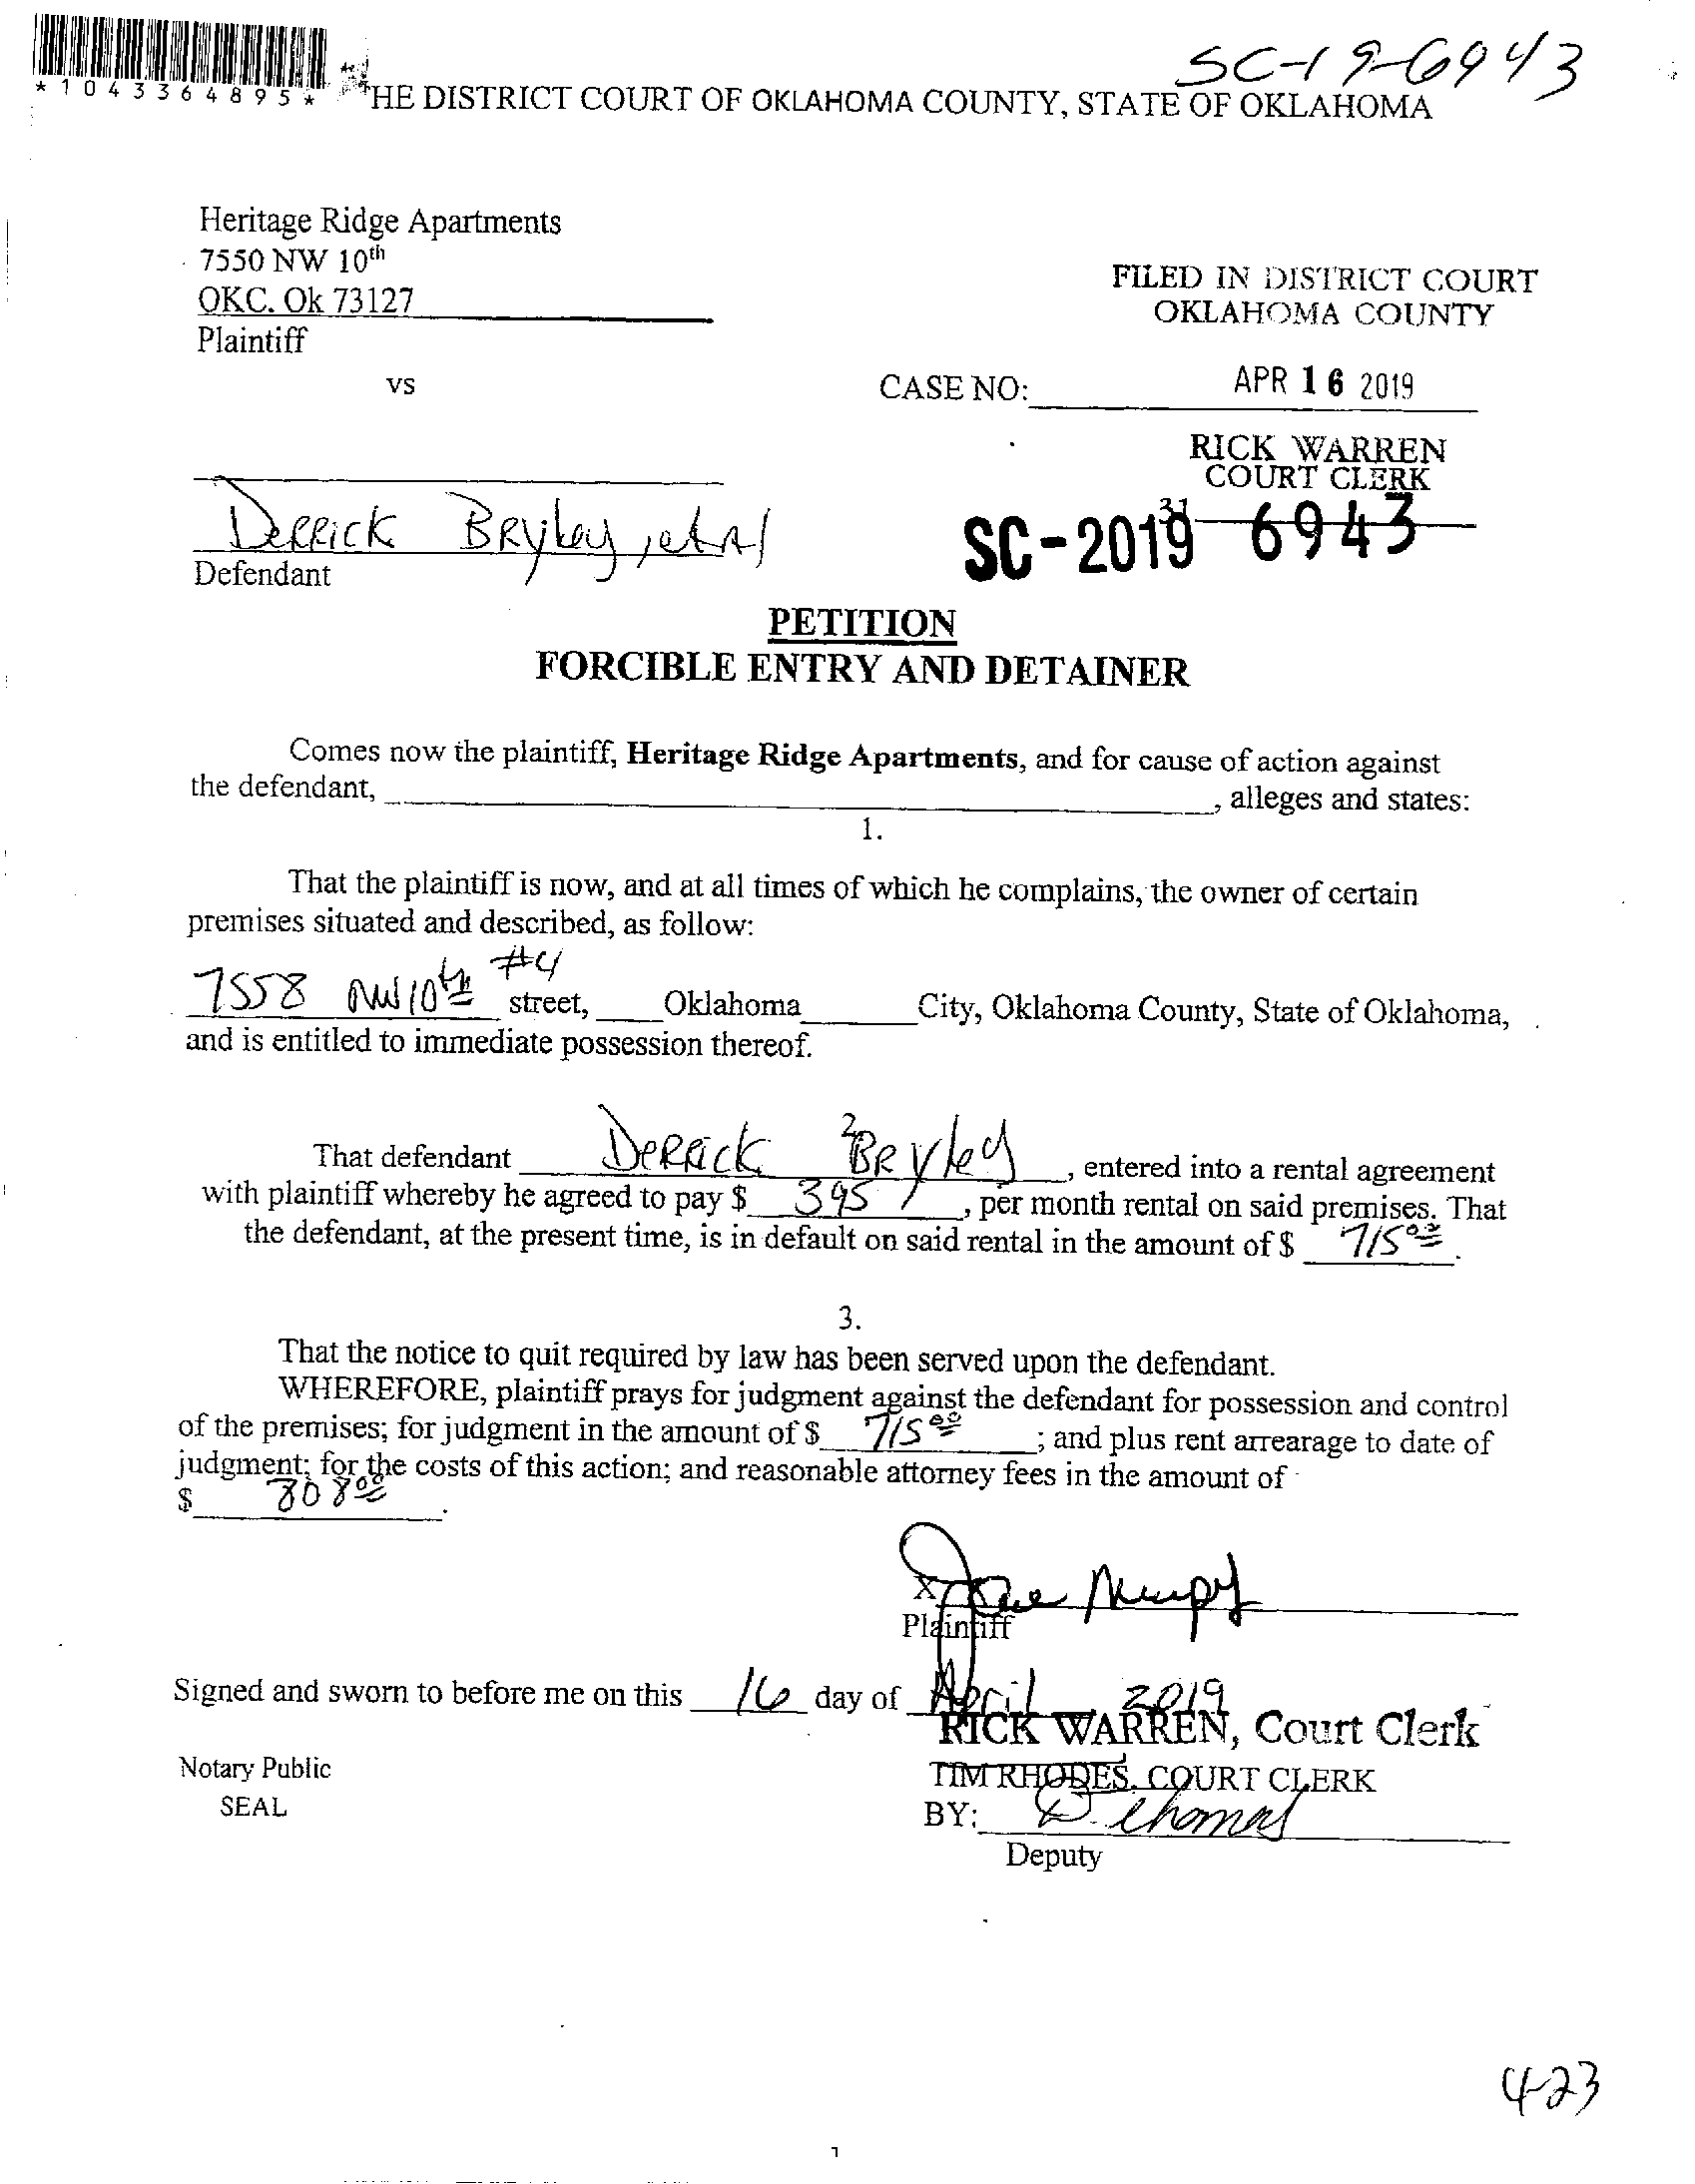 SC-19-6943
*1043364895*
THE DISTRICT COURT OF OKLAHOMA COUNTY, STATE OF OKLAHOMA
Heritage Ridge Apartments
7550 NW 10th
OKC. Ok 73127
Plaintiff
FILED IN DISTRICT COURT
OKLAHOMA COUNTY
vs
CASE NO:
APR 16 2019
RICK WARREN
COURT CLERK
31
Derrick Bryley, et al
Defendant
SC-2019 6943
PETITION
FORCIBLE ENTRY AND DETAINER
Comes now the plaintiff, Heritage Ridge Apartments, and for cause of action against
the defendant, , alleges and states:
1.
That the plaintiff is now, and at all times of which he complains, the owner of certain
premises situated and described, as follow:
7558 NW 10th #4 street, Oklahoma City, Oklahoma County, State of Oklahoma,
and is entitled to immediate possession thereof.
2
That defendant Derrick Bryley, entered into a rental agreement
with plaintiff whereby he agreed to pay $ 395, per month rental on said premises. That
the defendant, at the present time, is in default on said rental in the amount of $ 715.00.
3.
That the notice to quit required by law has been served upon the defendant.
WHEREFORE, plaintiff prays for judgment against the defendant for possession and control
of the premises; for judgment in the amount of $ 715.00; and plus rent arrearage to date of
judgment; for the costs of this action; and reasonable attorney fees in the amount of
$ 808.00.
X
Plaintiff
Signed and sworn to before me on this 16 day of April 2019
RICK WARREN, Court Clerk
Notary Public
TIM RHODES, COURT CLERK
SEAL
BY: D. Thomas
Deputy
4-23